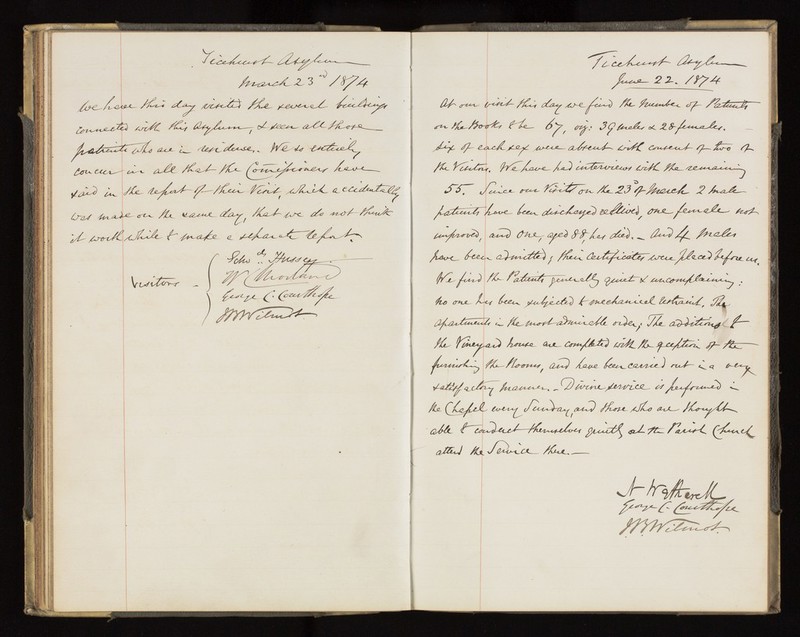 Ticehurst Asylum
March 23rd 1874
We have this day visited the several buildings
connected with this Asylum, & seen all those
patients who are in residence. We so entirely
concur in all that the Commissioners have
said in the report of their Visit, which accidentally
was made on the same day, that we do not think
it worth while to make a separate report.
Visitors
Edwd. Hussey
George C. Courthope
Ticehurst Asylum
June 22. 1874
At our visit this day we find the number of Patients
on the Books to be 67, viz: 39 males & 28 females.
Six of each sex were absent with consent of two of
the Visitors. We have had interviews with the remaining
55. Since our Visit on the 23d of March 2 male
patients have been discharged relieved, one female not
improved, and one, aged 88, has died. — And 4 Males
have been admitted; their Certificates were placed before us.
We find the Patients generally quiet & uncomplaining:
no one has been subjected to mechanical restraint. The
apartments in the most admirable order; The additions to
the Vineyard house are completed with the exception of the
furnishing the Rooms, and have been carried out in a very
satisfactory manner. — Divine service is performed in
the Chapel every Sunday, and those who are thought
able to conduct themselves quietly at the Parish Church
attend the Service there. —
George C. Courthope